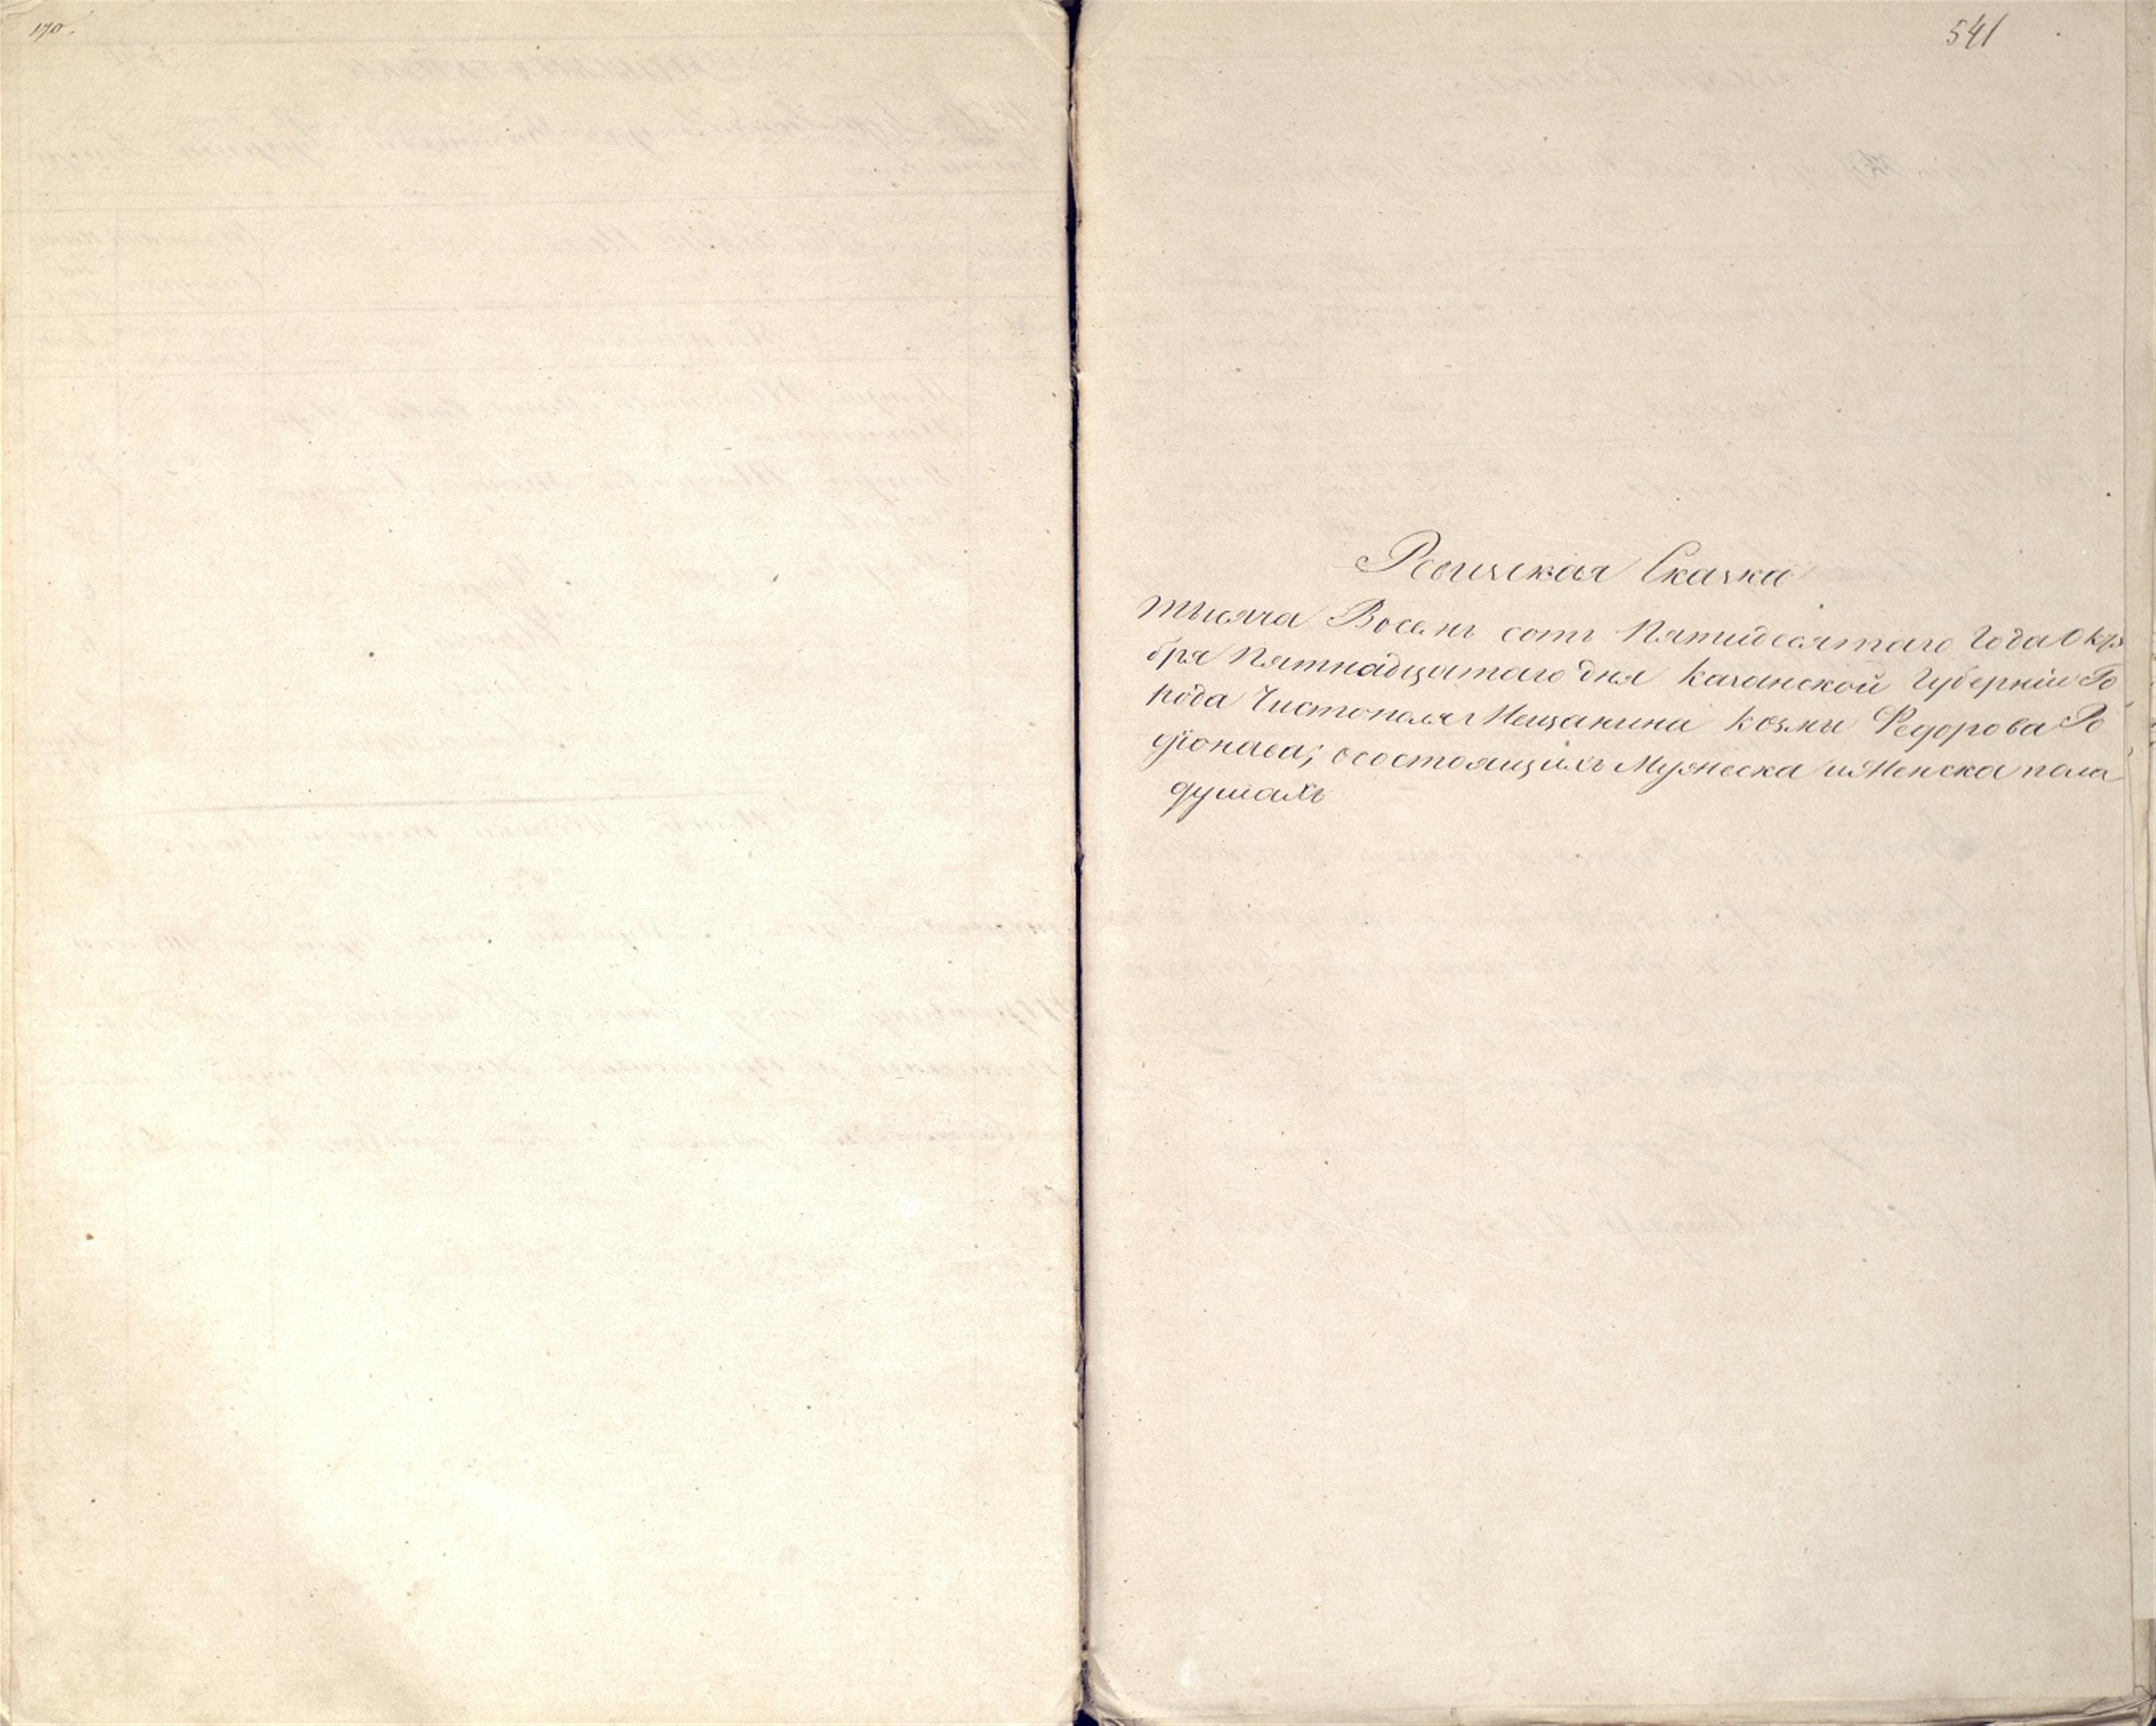 170.
541
Ревизская Сказка
тысяча Восемь сотъ Пятидесятаго Года Октя
бря Пятнадцатаго дня Казанской Губерніи Го
рода Чистополя Мещанина Козмы Федорова Ро
діонава; осостоящихъ Мужеска иЖенска пола
душахъ